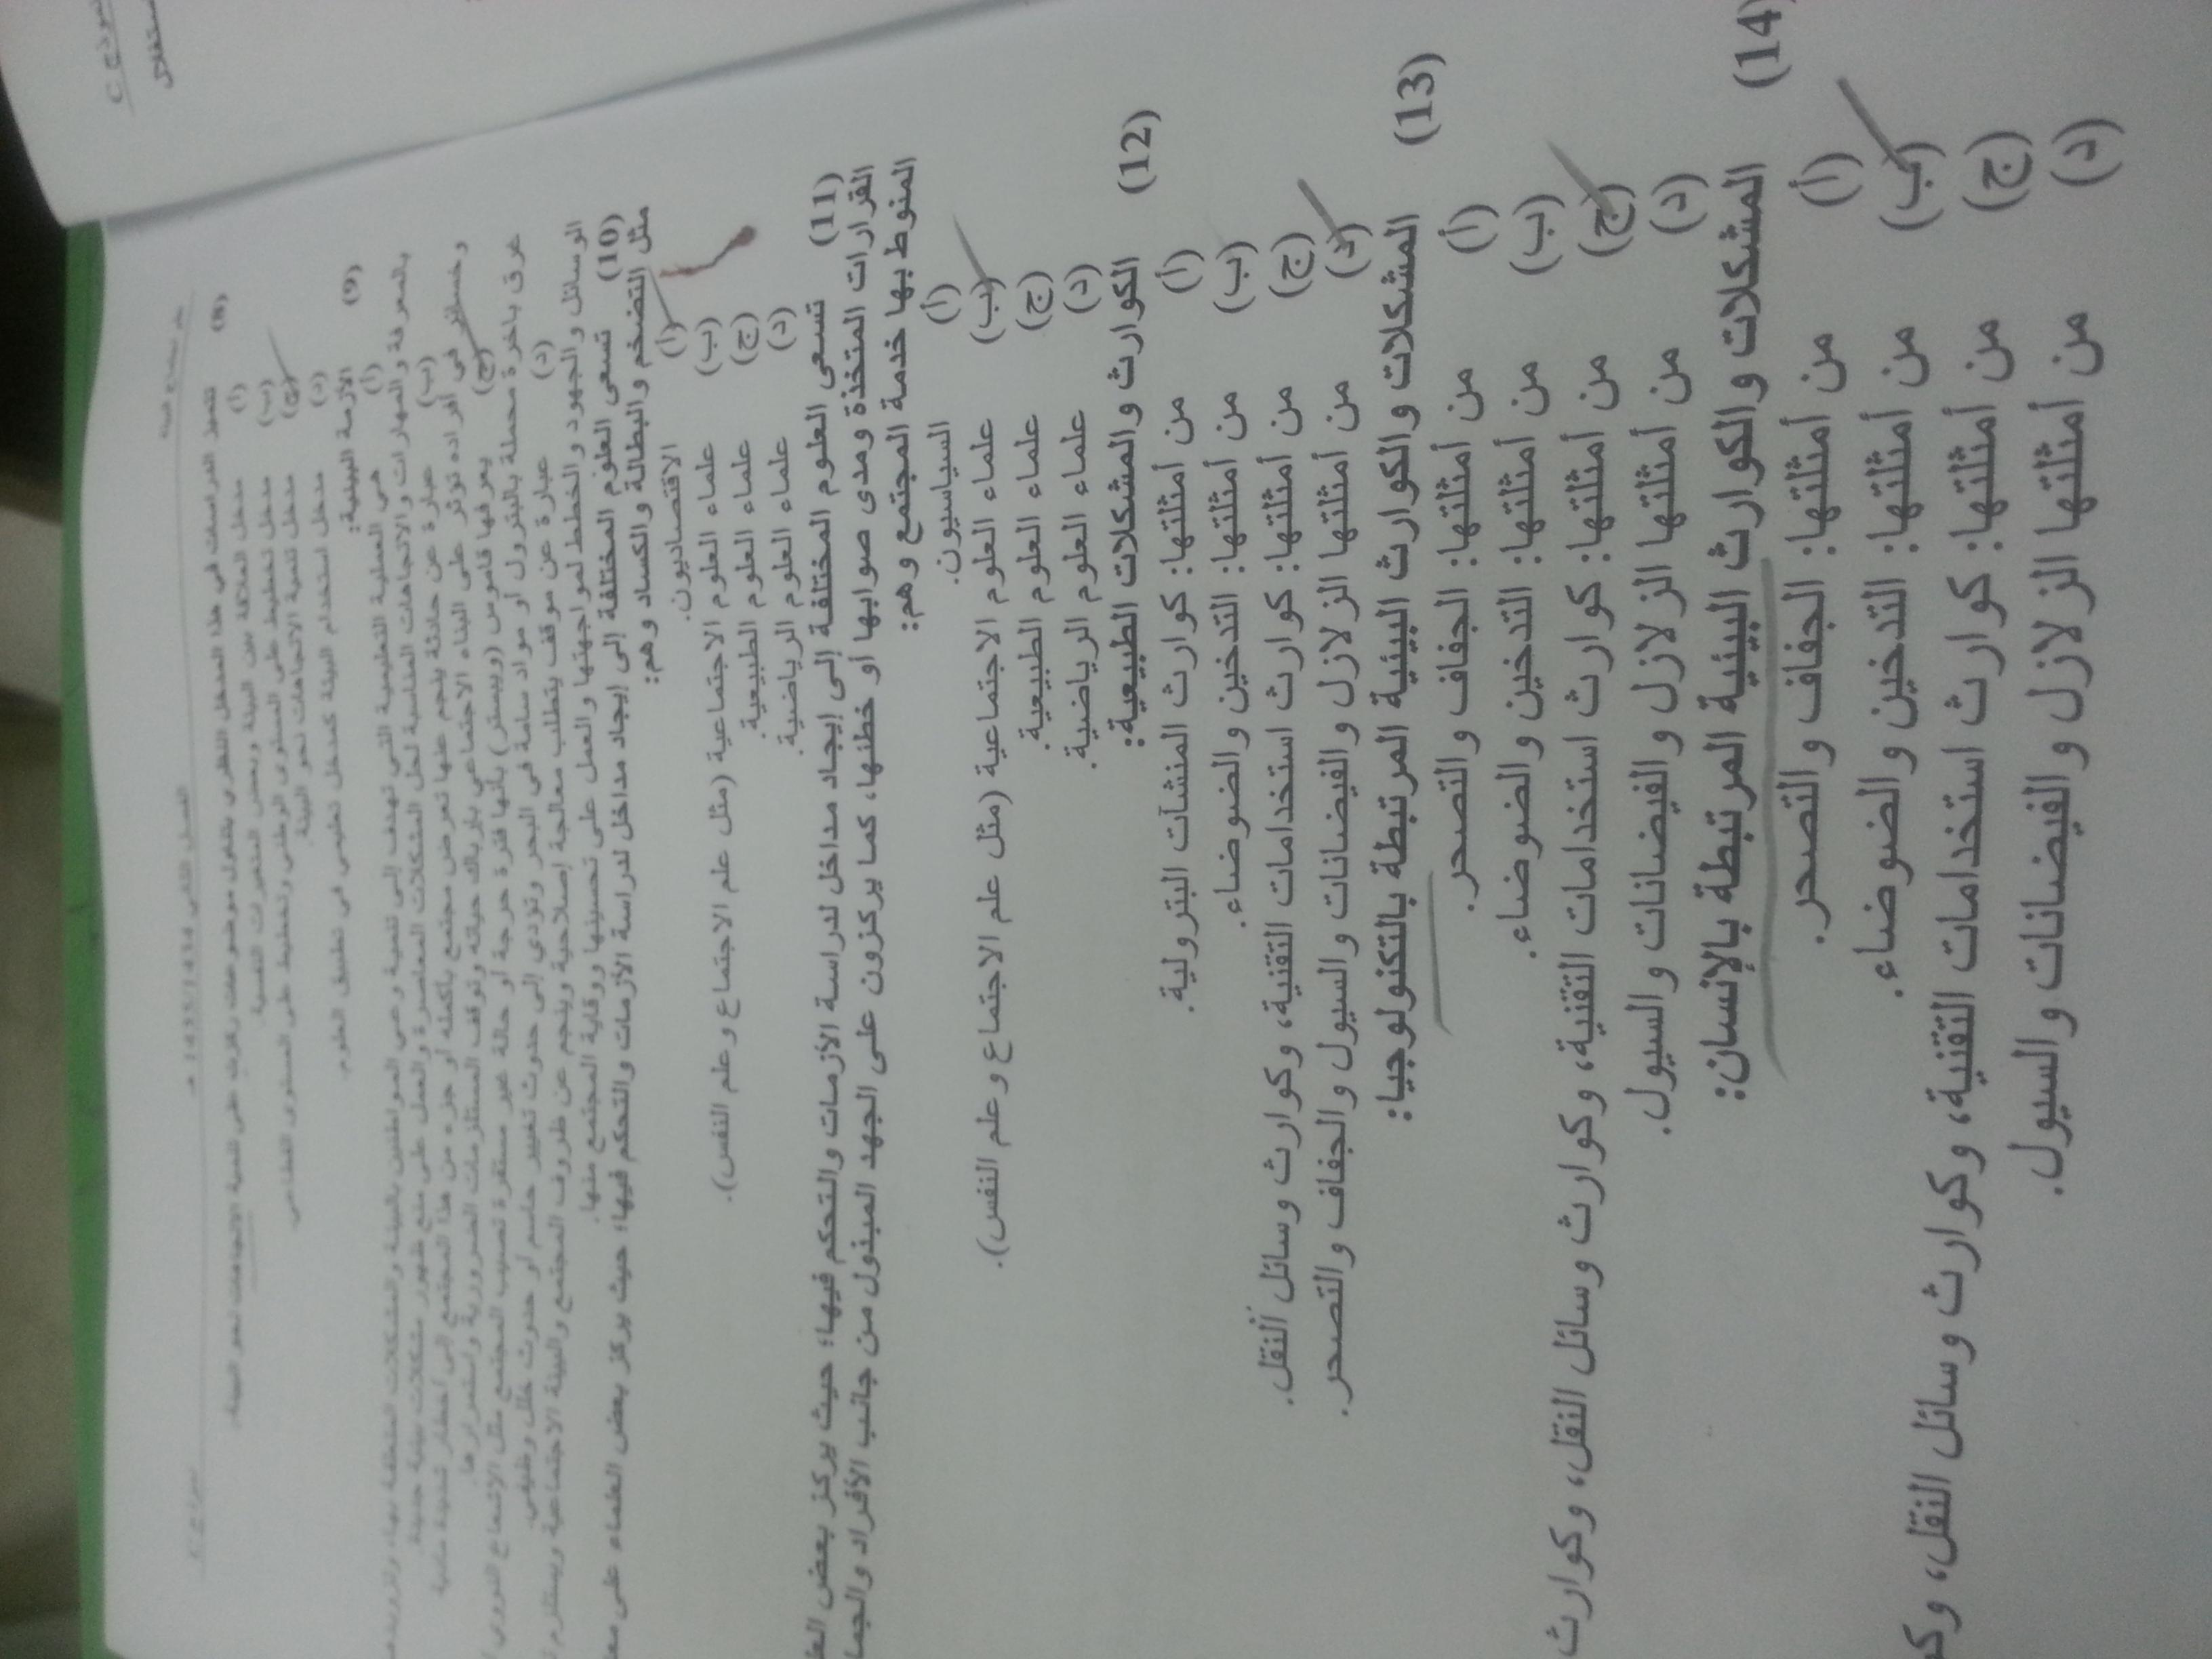 نموذج C
(8) تتميز الدراسات في هذا المدخل النظري بتناول موضوعات ركزت على تنمية الاتجاهات نحو البيئة.
(أ) مدخل العلاقة بين البيئة وبعض المتغيرات النفسية.
(ب) مدخل تخطيط على المستوى الوطني وتخطيط على المستوى القطاعي.
(ج) مدخل تنمية الاتجاهات نحو البيئة.
(د) مدخل استخدام البيئة كمدخل تعليمي في تطبيق العلوم.
(9) الأزمة البيئية:
(أ) هي العملية التعليمية التي تهدف إلى تنمية وعي المواطنين بالبيئة والمشكلات المتعلقة بها، وتزويدهم
بالمعرفة والمهارات والاتجاهات المناسبة لحل المشكلات المعاصرة والعمل على منع ظهور مشكلات بيئية جديدة.
(ب) عبارة عن حادثة ينجم عنها تعرض مجتمع بأكمله أو جزء من هذا المجتمع إلى أخطار شديدة مادية
وخسائر في أفراده تؤثر على البناء الاجتماعي بإرباك حياته وتوقف المستلزمات الضرورية واستمرارها.
(ج) يعرفها قاموس (ويبستر) بأنها فترة حرجة أو حالة غير مستقرة تصيب المجتمع مثل الإشعاع النووي
غرق باخرة محملة بالبترول أو مواد سامة في البحر وتؤدي إلى حدوث تغيير حاسم أو حدوث خلل وظيفي.
(د) عبارة عن موقف يتطلب معالجة إصلاحية وينجم عن ظروف المجتمع والبيئة الاجتماعية ويستلزم
الوسائل والجهود والخطط لمواجهتها والعمل على تحسينها ووقاية المجتمع منها.
(10) تسعى العلوم المختلفة إلى إيجاد مداخل لدراسة الأزمات والتحكم فيها؛ حيث يركز بعض العلماء على
مثل التضخم والبطالة والكساد وهم:
(أ) الاقتصاديون.
(ب) علماء العلوم الاجتماعية (مثل علم الاجتماع وعلم النفس).
(ج) علماء العلوم الطبيعية.
(د) علماء العلوم الرياضية.
(11) تسعى العلوم المختلفة إلى إيجاد مداخل لدراسة الأزمات والتحكم فيها؛ حيث يركز بعض
القرارات المتخذة ومدى صوابها أو خطئها، كما يركزون على الجهد المبذول من جانب الأفراد
المنوط بها خدمة المجتمع وهم:
(أ) السياسيون.
(ب) علماء العلوم الاجتماعية (مثل علم الاجتماع وعلم النفس).
(ج) علماء العلوم الطبيعية.
(د) علماء العلوم الرياضية.
(12) الكوارث والمشكلات الطبيعية:
(أ) من أمثلتها: كوارث المنشآت البترولية.
(ب) من أمثلتها: التدخين والضوضاء.
(ج) من أمثلتها: كوارث استخدامات التقنية، وكوارث وسائل النقل.
(د) من أمثلتها الزلازل والفيضانات والسيول والجفاف والتصحر.
(13) المشكلات والكوارث البيئية المرتبطة بالتكنولوجيا:
(أ) من أمثلتها: الجفاف والتصحر.
(ب) من أمثلتها: التدخين والضوضاء.
(ج) من أمثلتها: كوارث استخدامات التقنية، وكوارث وسائل النقل، وكوارث
(د) من أمثلتها الزلازل والفيضانات والسيول.
(14) المشكلات والكوارث البيئية المرتبطة بالإنسان:
(أ) من أمثلتها: الجفاف والتصحر.
(ب) من أمثلتها: التدخين والضوضاء.
(ج) من أمثلتها: كوارث استخدامات التقنية، وكوارث وسائل النقل،
(د) من أمثلتها الزلازل والفيضانات والسيول.